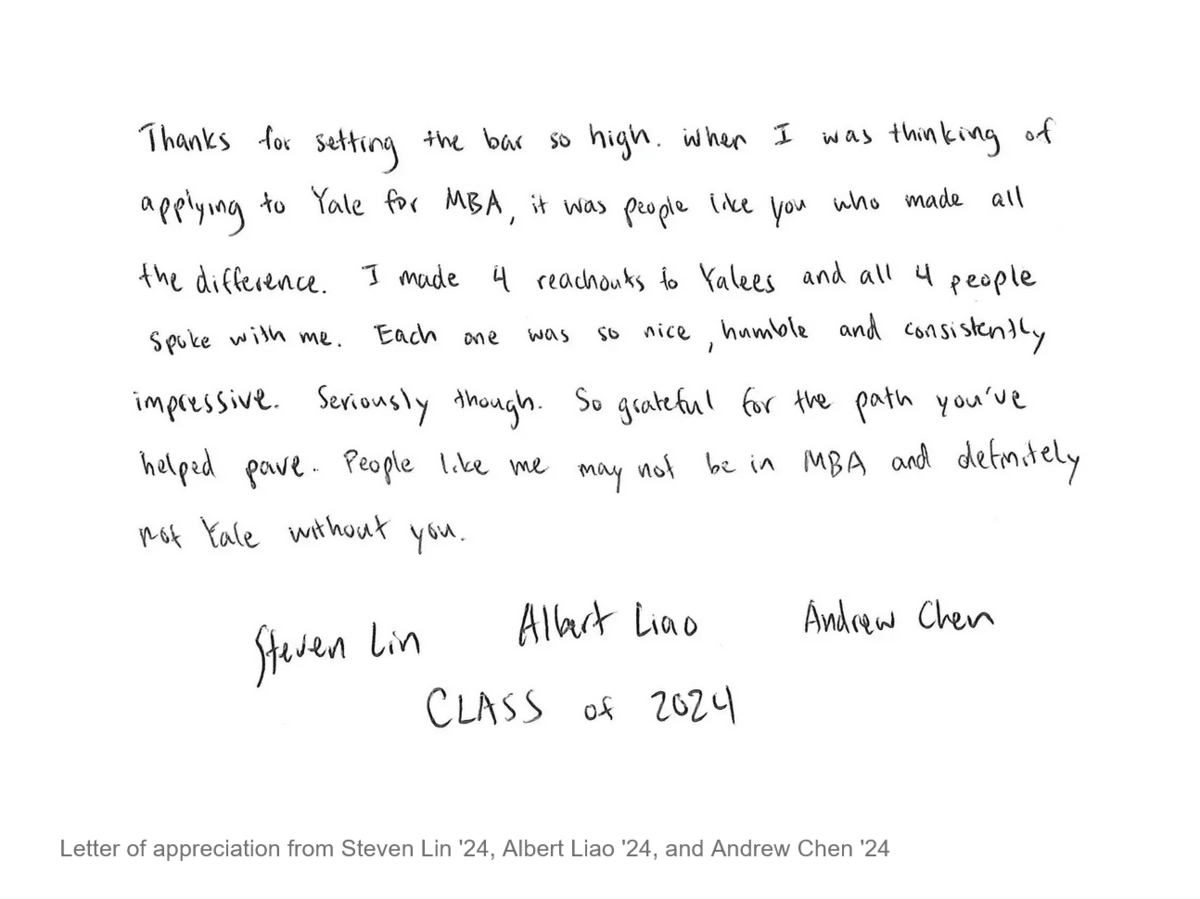 Thanks for setting the bar so high. When I was thinking of
applying to Yale for MBA, it was people like you who made all
the difference. I made 4 reachouts to Yalees and all 4 people
spoke with me. Each one was so nice, humble and consistently
impressive. Seriously though. So grateful for the path you've
helped pave. People like me may not be in MBA and definitely
not Yale without you.
Steven Lin Albert Liao Andrew Chen
CLASS of 2024
Letter of appreciation from Steven Lin '24, Albert Liao '24, and Andrew Chen '24